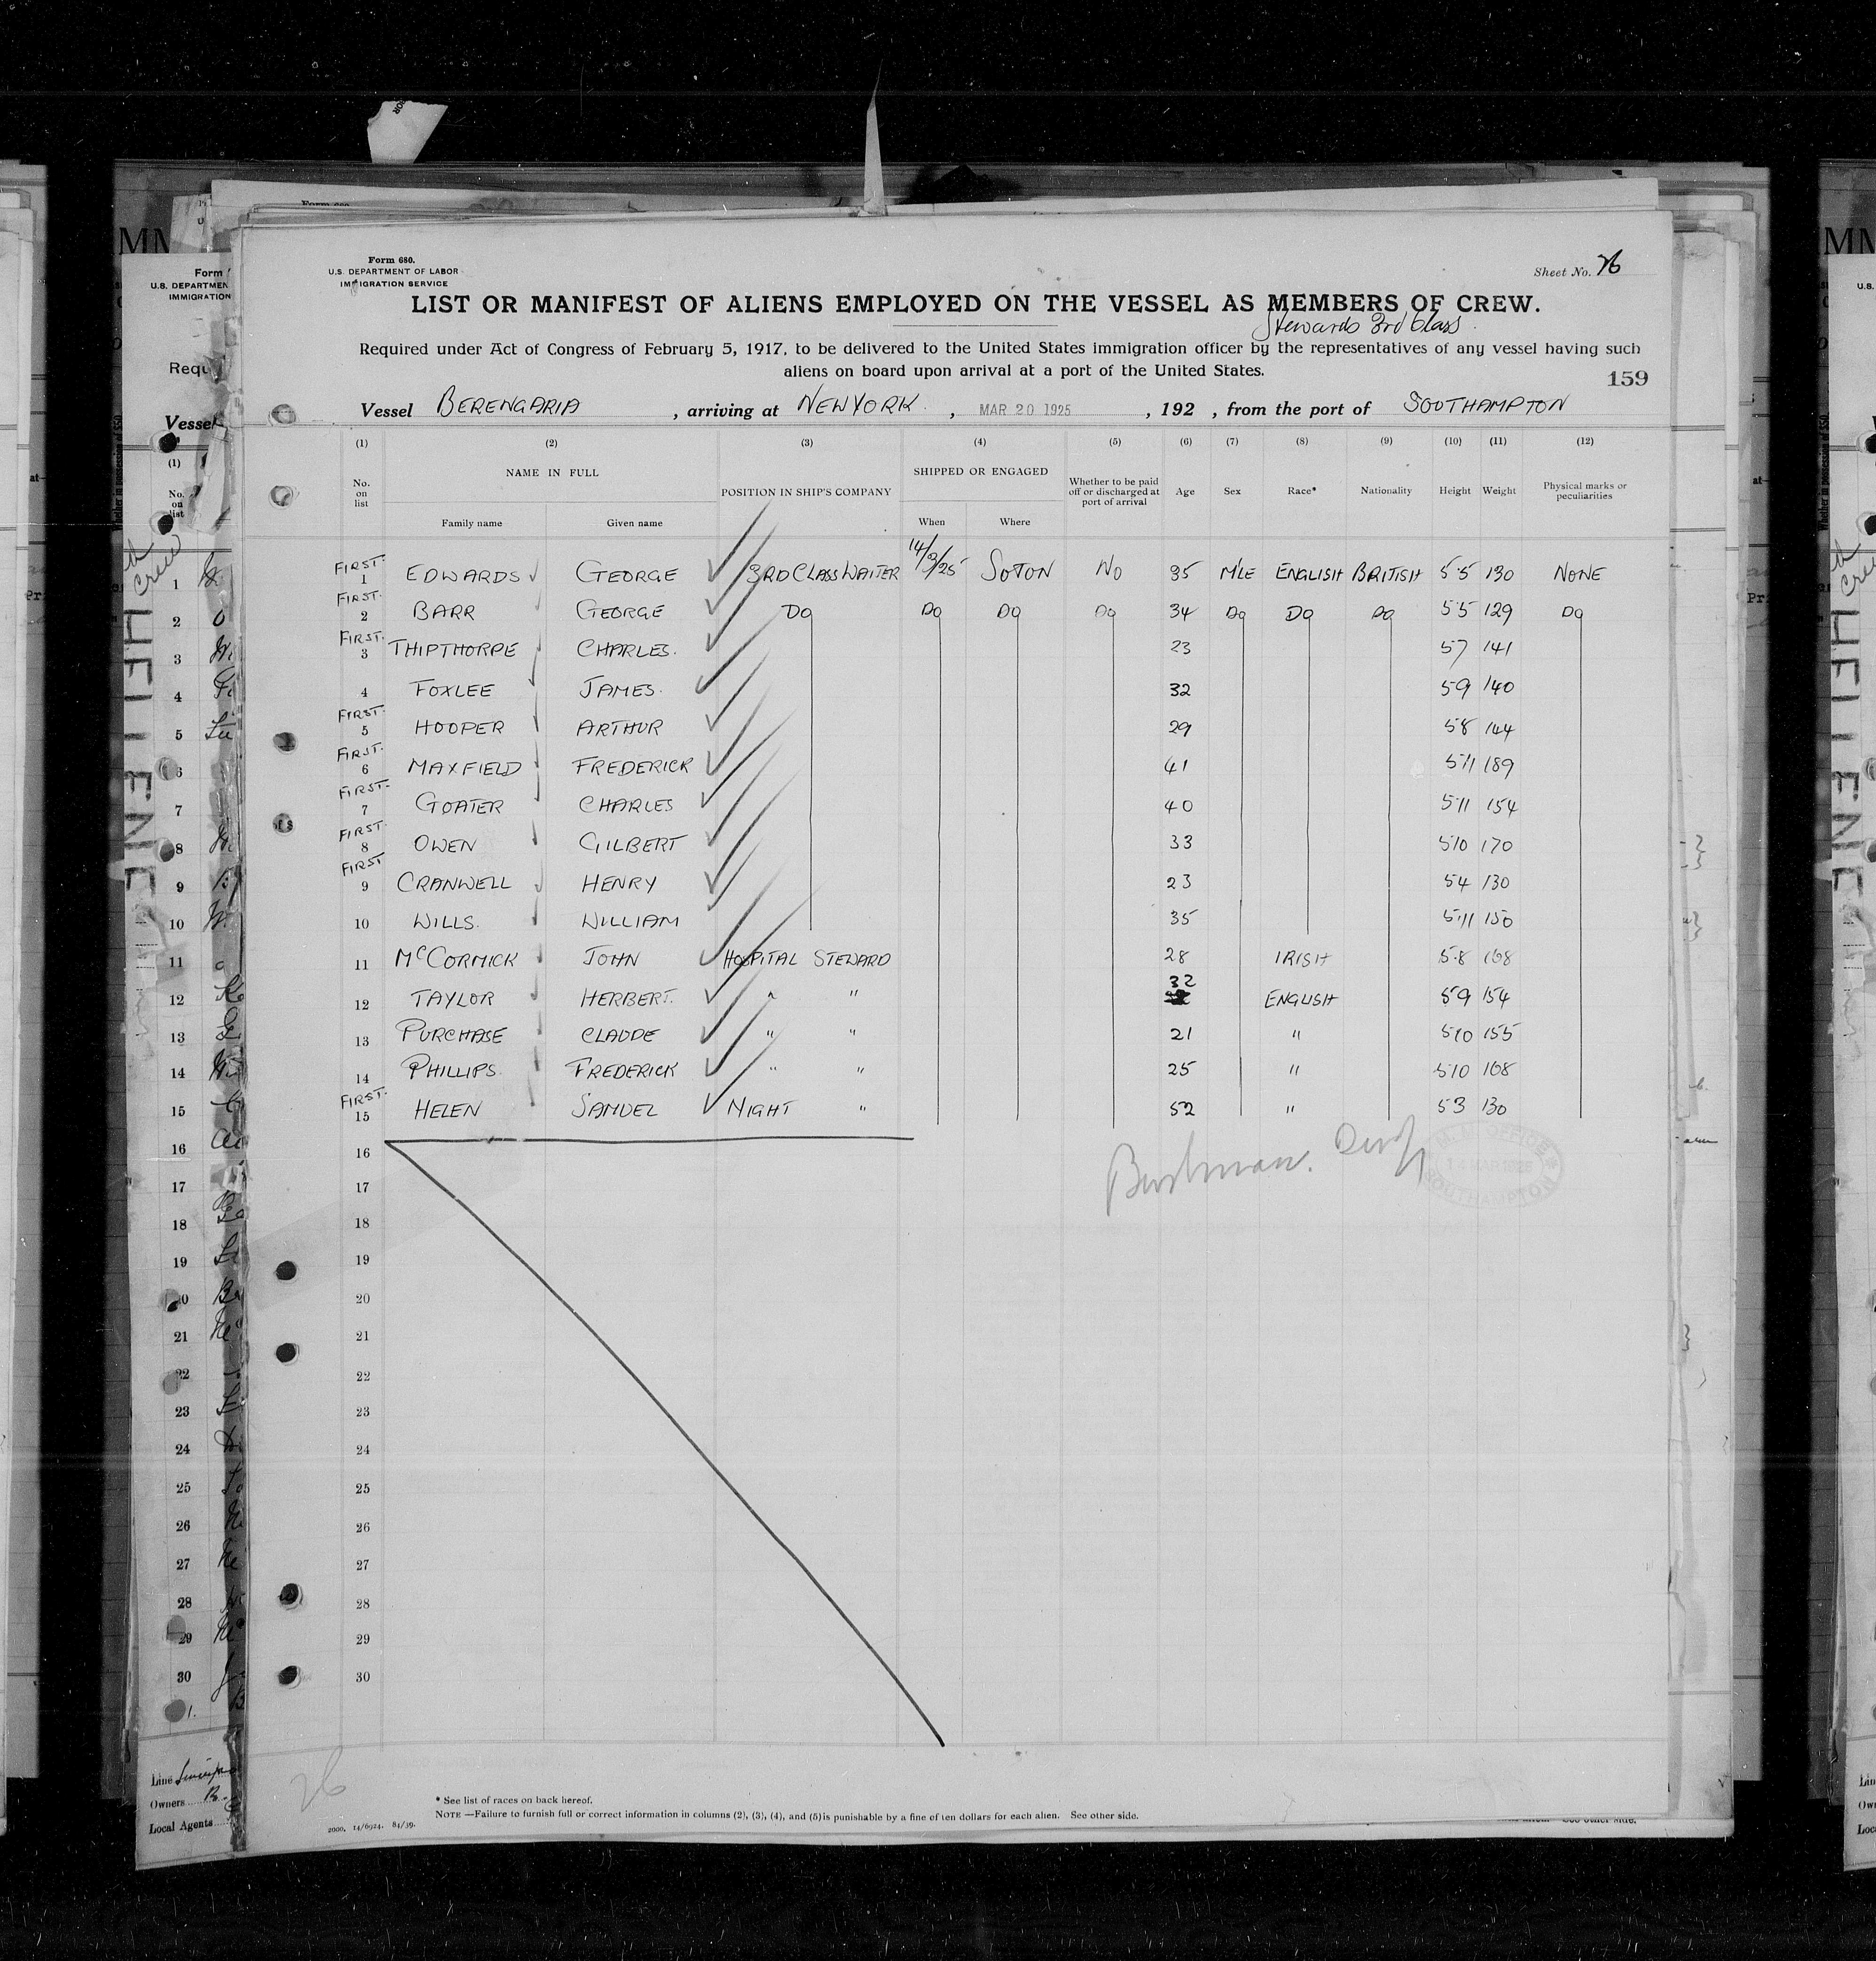 Form 680.
U.S. DEPARTMENT OF LABOR
IMMIGRATION SERVICE
Sheet No. 26
LIST OR MANIFEST OF ALIENS EMPLOYED ON THE VESSEL AS MEMBERS OF CREW.
Stewards 3rd Class.
Required under Act of Congress of February 5, 1917, to be delivered to the United States immigration officer by the representatives of any vessel having such
aliens on board upon arrival at a port of the United States.
159
Vessel BERENGARIA, arriving at NEW YORK., MAR 20 1925, 192 , from the port of SOUTHAMPTON
(1) (2) (3) (4) (5) (6) (7) (8) (9) (10) (11) (12)
No. on list NAME IN FULL Family name Given name POSITION IN SHIP'S COMPANY SHIPPED OR ENGAGED When Where Whether to be paid off or discharged at port of arrival Age Sex Race* Nationality Height Weight Physical marks or peculiarities
FIRST. 1 EDWARDS GEORGE 3RD CLASS WAITER 14/3/25 SOTON NO 35 MLE ENGLISH BRITISH 5·5 130 NONE
FIRST. 2 BARR GEORGE DO DO DO DO 34 DO DO DO 5·5 129 DO
FIRST. 3 THIPTHORPE CHARLES. 23 57 141
4 FOXLEE JAMES. 32 59 140
FIRST. 5 HOOPER ARTHUR 29 58 144
FIRST. 6 MAXFIELD FREDERICK 41 5·11 189
FIRST. 7 GOATER CHARLES 40 5·11 154
FIRST. 8 OWEN GILBERT 33 510 170
FIRST 9 CRANWELL HENRY 23 54 130
10 WILLS. WILLIAM 35 5·11 150
11 McCORMICK JOHN HOSPITAL STEWARD 28 IRISH 5·8 168
12 TAYLOR HERBERT. " " 32 ENGLISH 59 154
13 PURCHASE CLAUDE " " 21 " 510 155
14 PHILLIPS. FREDERICK " " 25 " 510 168
FIRST. 15 HELEN SAMUEL NIGHT " 52 " 53 130
16
17
18
19
20
21
22
23
24
25
26
27
28
29
30
26
* See list of races on back hereof.
NOTE —Failure to furnish full or correct information in columns (2), (3), (4), and (5) is punishable by a fine of ten dollars for each alien. See other side.
2000. 14/6924. 84/39.